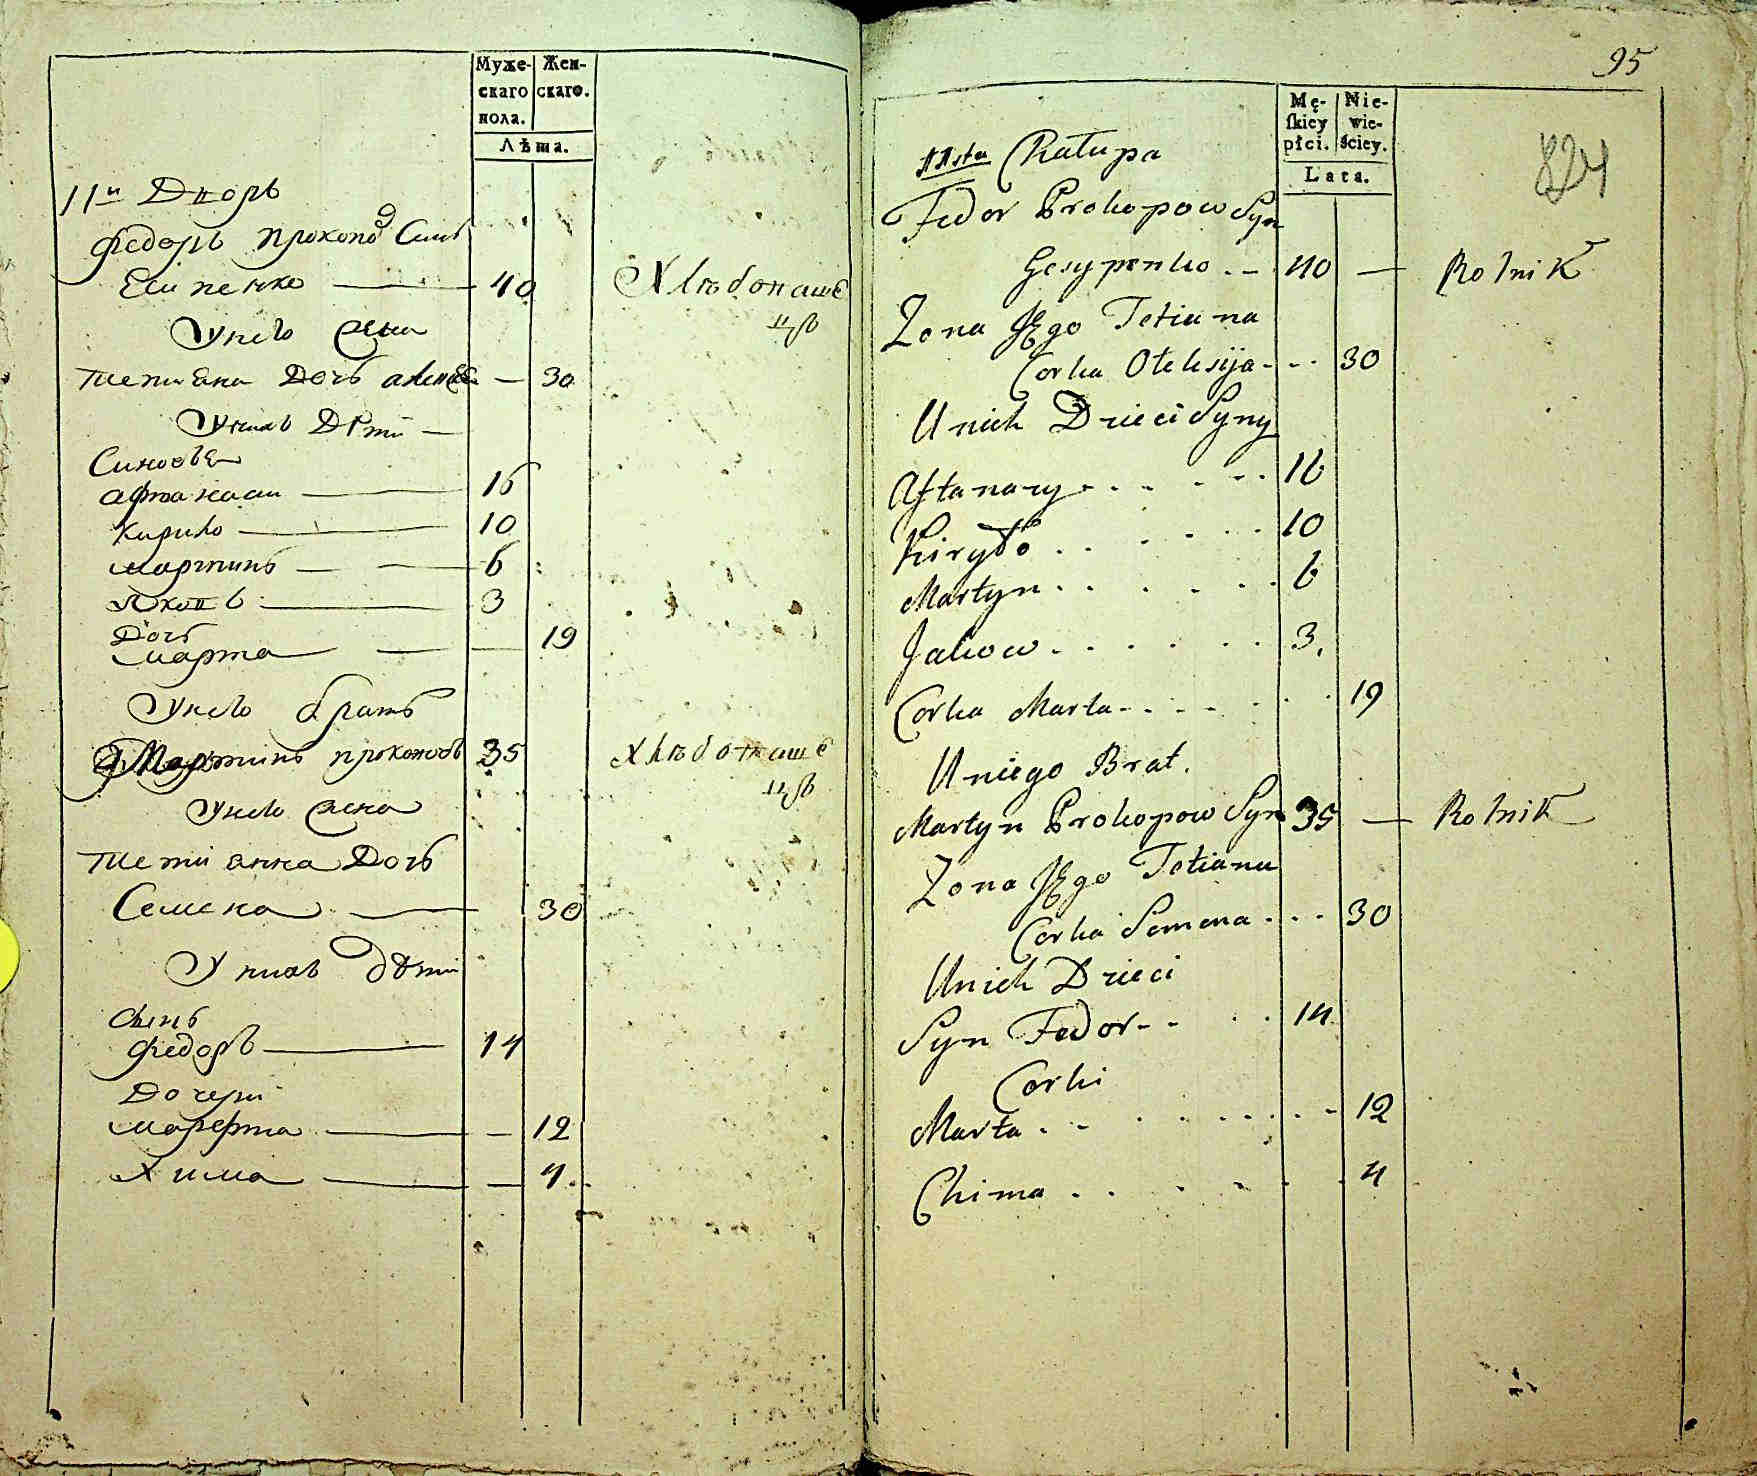 Муже-
скаго
пола.
Жен-
скаго.
Лѣта.
11й Дворъ
Федоръ Прокопов Синъ
Есипенко — 40
Хлѣбопаше
цъ
У него Жена
Тетиана Дочъ Алексея — 30
У нихъ Дѣти —
Синовья
Афтанаси — 16
Кирило — 10
Мартинъ — 6
Яковъ — 3
Дочъ
Марта — 19
У него братъ
Мартинъ Прокоповъ 35
Хлѣбопаше
цъ
У него Жена
Тетианна Дочъ
Семена — 30
У нихъ дѣти
Сынъ
Федоръ — 14
Дочери
Марфта — 12
Хима — 4
95
824
Mę-
ſkiey
płci.
Nie-
wie-
ściey.
Lata.
11sta Chałupa
Fedor Prokopow Syn
Gesypenko . — 40 — Rolnik
Zona Jego Tetiana
Corka Oleksija - - - 30
U nich Dzieci Syny
Aftanazy . . . . . 16
Kiryło . . . . . 10
Martyn . . . . . 6
Jakow . . . . . 3.
Corka Marta - . . . . 19
U niego Brat.
Martyn Prokopow Syn 35 — Rolnik
Zona Jego Tetiana
Corka Semena . - . - 30
U nich Dzieci
Syn Fedor - - . . 14
Corki
Marta . - . . . . - 12
Chima . . . . . . 4